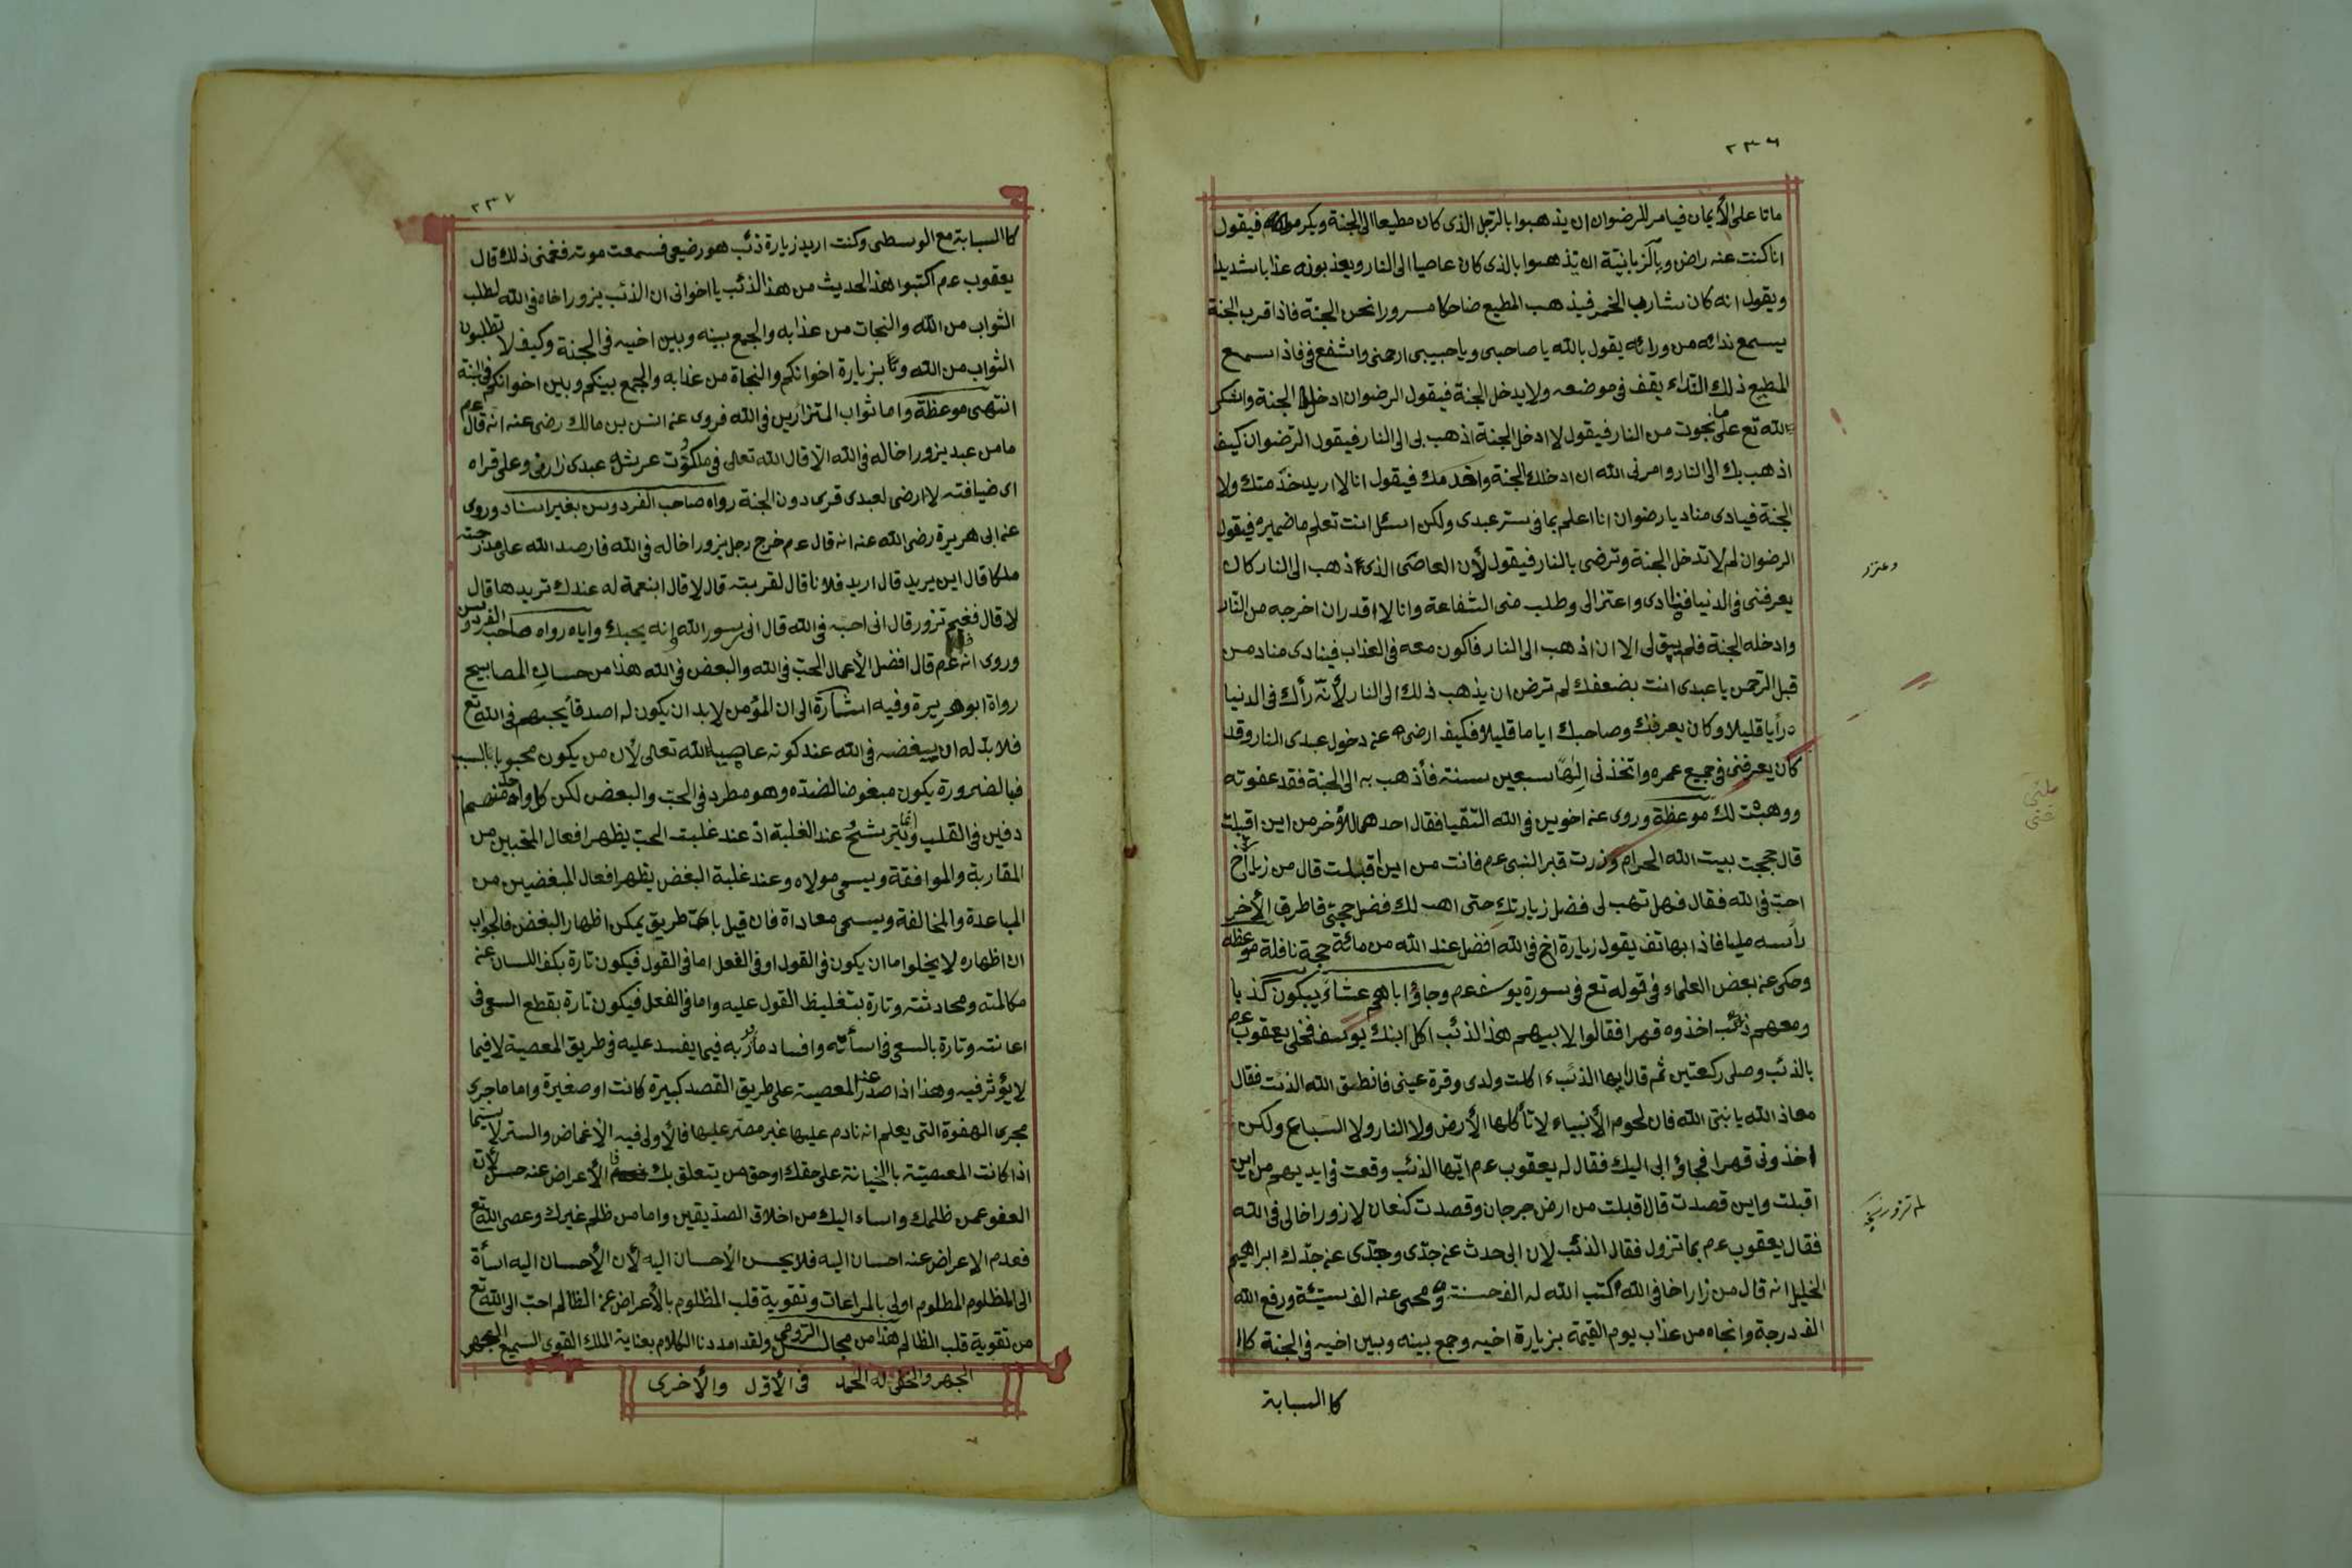 ٢٣٦
ماتا على الأيمان فيامر للرضوان ان يذهبوا بالرجل الذى كان مطيعا الى الجنة ويكرموا فيقول
انا كنت عنه راض ويا لزبانيّة ان يذهبوا بالذى كان عاصيا الى النار ويعذبونه عذابا شديدا
ويقول انه كان شارب الخمر فيذهب المطيع ضاحكا مسرورا نحن الجنة فاذا قرب الجنة
يسمع ندائه من ورائه يقول بالله يا صاحبى ويا حبيبى ارحمنى واشفع فى فاذا سمع
المطيع ذلك النداء يقف فى موضعه ولا يدخل الجنة فيقول الرضوان ادخل الجنة واشكر
الله تع على ما نجوت من النار فيقول لا ادخل الجنة اذهب بى الى النار فيقول الرضوان كيف
اذهب بك الى النار وامرنى الله ان ادخلك الجنة واخدمك فيقول انا لا اريد خدمتك ولا
الجنة فيادى مناد يا رضوان انا اعلم بما فى سر عبدى ولكن اسئل انت تعلم ما ضميره فيقول
الرضوان لم لا تدخل الجنة وترضى بالنار فيقول لأن العاصى الذى ذهب الى النار كان
يعرفنى فى الدنيا فنادى واعتز الى وطلب منى الشفاعة وانا لا اقدر ان اخرجه من النار
وادخله الجنة فلم يبق لى الا ان اذهب الى النار فاكون معه فى العذاب فينادى مناد من
قبل الرحمن يا عبدى انت بضعفك لم ترض ان يذهب ذلك الى النار لأنّه رأك فى الدنيا
رأيا قليلا وكان يعرفك وصاحبك اياما قليلا فكيف ارضى عنه دخول عبدى النار وقد
كان يعرفنى فى جميع عمره واتخذنى الٰهًا سبعين سنته فأذهب به الى الجنة فقد عفوته
ووهبت لك موعظة وروى عنه اخوين فى الله التقيا فقال احدهما للأخر من اين اقبلت
قال حججت بيت الله الحرام وزرت قبر النبى عم فانت من اين اقبلت قال من زيارة اخ
احب فى الله فقال فهل تهب لى فضل زيارتك حتى اهب لك فضل حجتى فاطرق الأخر
رأسه مليا فاذا بهاتف يقول زيارة اخ فى الله افضل عند الله من مائة حجة نافلة موعظة
وحكى عنه بعض العلماء فى قوله تع فى سورة يوسف عم وجاؤا اباهم عشاء يبكون كذبا
ومعهم ذئب اخذوه قهرا فقالوا لابيهم هذا الذئب اكل ابنك يوسف فخلى يعقوب عم
بالذئب وصلى ركعتين ثم قال ايها الذئب اكلت ولدى وقرة عينى فانطق الله الذئب فقال
معاذ الله يا نبى الله فان لحوم الأنبياء لا تأكلها الأرض ولا النار ولا السباع ولكن
اخذونى قهرا فجاؤ ابى اليك فقال له يعقوب عم ايها الذئب وقعت فى ايديهم من اين
اقبلت واين قصدت قال اقبلت من ارض جرجان وقصدت كنعان لازور اخا لى فى الله
فقال يعقوب عم بما تزول فقال الذئب لان ابى حدث عنه جدّى وجدّى عنه جدك ابراهيم
الخليل انه قال من زار اخا فى الله كتب الله له الف حسنة ومحى عنه الف سيئة ورفع الله
الف درجة وانجاه من عذاب يوم القيمة بزيارة اخيه وجمع بينه وبين اخيه فى الجنة كا
كا السبابة
وعترر
٢٣٧
كا السبابة مع الوسطى وكنت اريد زيارة ذئب هو رضيعى فسمعت موته فغمنى ذلك قال
يعقوب عم اكتبوا هذا الحديث من هذا الذئب يا اخوانى ان الذئب يزور اخاه فى الله لطلب
الثواب من الله والنجات من عذابه والجمع بينه وبين اخيه فى الجنة وكيف لا تطلبون
الثواب من الله وتا بزيارة اخوانكم والنجاة من عذابه والجمع بينكم وبين اخوانكم فى الجنة
انتهى موعظة واما ثواب المتزارين فى الله فروى عنه انس بن مالك رضى عنه انه قال عم
ما من عبد يزور اخا له فى الله الا قال الله تعالى فى ملكوت عرشه عبدى زارنى وعلى قراه
اى ضيافته لا ارضى لعبدى قرى دون الجنة رواه صاحب الفردوس بغير اسناد وروى
عنه ابى هريرة رضى الله عنه انه قال عم خرج رجل يزور اخا له فى الله فارصد الله على مدرجته
ملكا قال اين يريد قال اريد فلانا قال لقربته قال لا قال ابنعمة له عندك تريدها قال
لا قال فغيم تزور قال انى احبه فى الله قال انى رسور الله انه يحبك واياه رواه صاحب الفردوس
وروى انه عم قال افضل الأعمال الحب فى الله والبعض فى الله هذا من حسان المصابيح
رواة ابو هريرة وفيه اشارة الى ان المؤمن لا بد ان يكون له اصدقأ يحبهم فى الله تع
فلا بد له ان يبغضه فى الله عند كونه عاصيا الله تعالى لأن من يكون محبوبا بالسبب
فبالضرورة يكون مبغوضا لضده وهو مطرد فى الحب والبعض لكن كل واحد منهما
دفين فى القلب وانما يترشح عند الغلبة اذ عند غلبت الحب يظهر افعال المحبين من
المقاربة والموافقة ويسمى مولاه وعند غلبة البغض يظهر افعال المبغضين من
المباعدة والمخالفة ويسمى معاداة فان قيل باى طريق يمكن اظهار البغض فالجواب
ان اظهاره لا يخلوا اما ان يكون فى القول او فى الفعل اما فى القول فيكون تارة بكف اللسان عنه
مكالمته ومحادثته وتارة بتغليظ القول عليه واما فى الفعل فيكون تارة بقطع السعى فى
اعانته وتارة بالسعى فى اسأته وافساد مأربه فيما يفسد عليه فى طريق المعصية لا فيما
لا يؤثر فيه وهذا اذا صدر عنه المعصية على طريق القصد كبيرة كانت او صغيرة واما ما جرى
مجرى الهفوة التى يعلم انه نادم عليها غير مصر عليها فالأولى فيه الاغماض والستر لا سيما
اذا كانت المعصية بالخيانة على حقك او حق من يتعلق بك فا الأعراض عنه حسن لأن
العفو عمن ظلمك واساء اليك من اخلاق الصديقين واما من ظلم غيرك وعصى الله تع
فعدم الاعراض عنه احسان اليه فلا يحسن الأحسان اليه لأن الأحسان اليه اسأة
الى المظلوم المظلوم اولى بالمراعات وتقوية قلب المظلوم بالأعراض عنه الظالم احب الى الله تع
من تقوية قلب الظالم هذا من مجالس الرومى ولقد امددنا الكلام بعناية الملك القوى السميع
الجهر والخفى له الحمد فى الأوّل والأخرى